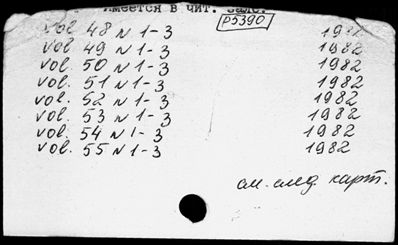 Имеется в чит. зале.
P5390
vol. 48 N 1-3 1982
vol. 49 N 1-3 1982
vol. 50 N 1-3 1982
vol. 51 N 1-3 1982
vol. 52 N 1-3 1982
vol. 53 N 1-3 1982
vol. 54 N 1-3 1982
vol. 55 N 1-3 1982
см. след. карт.